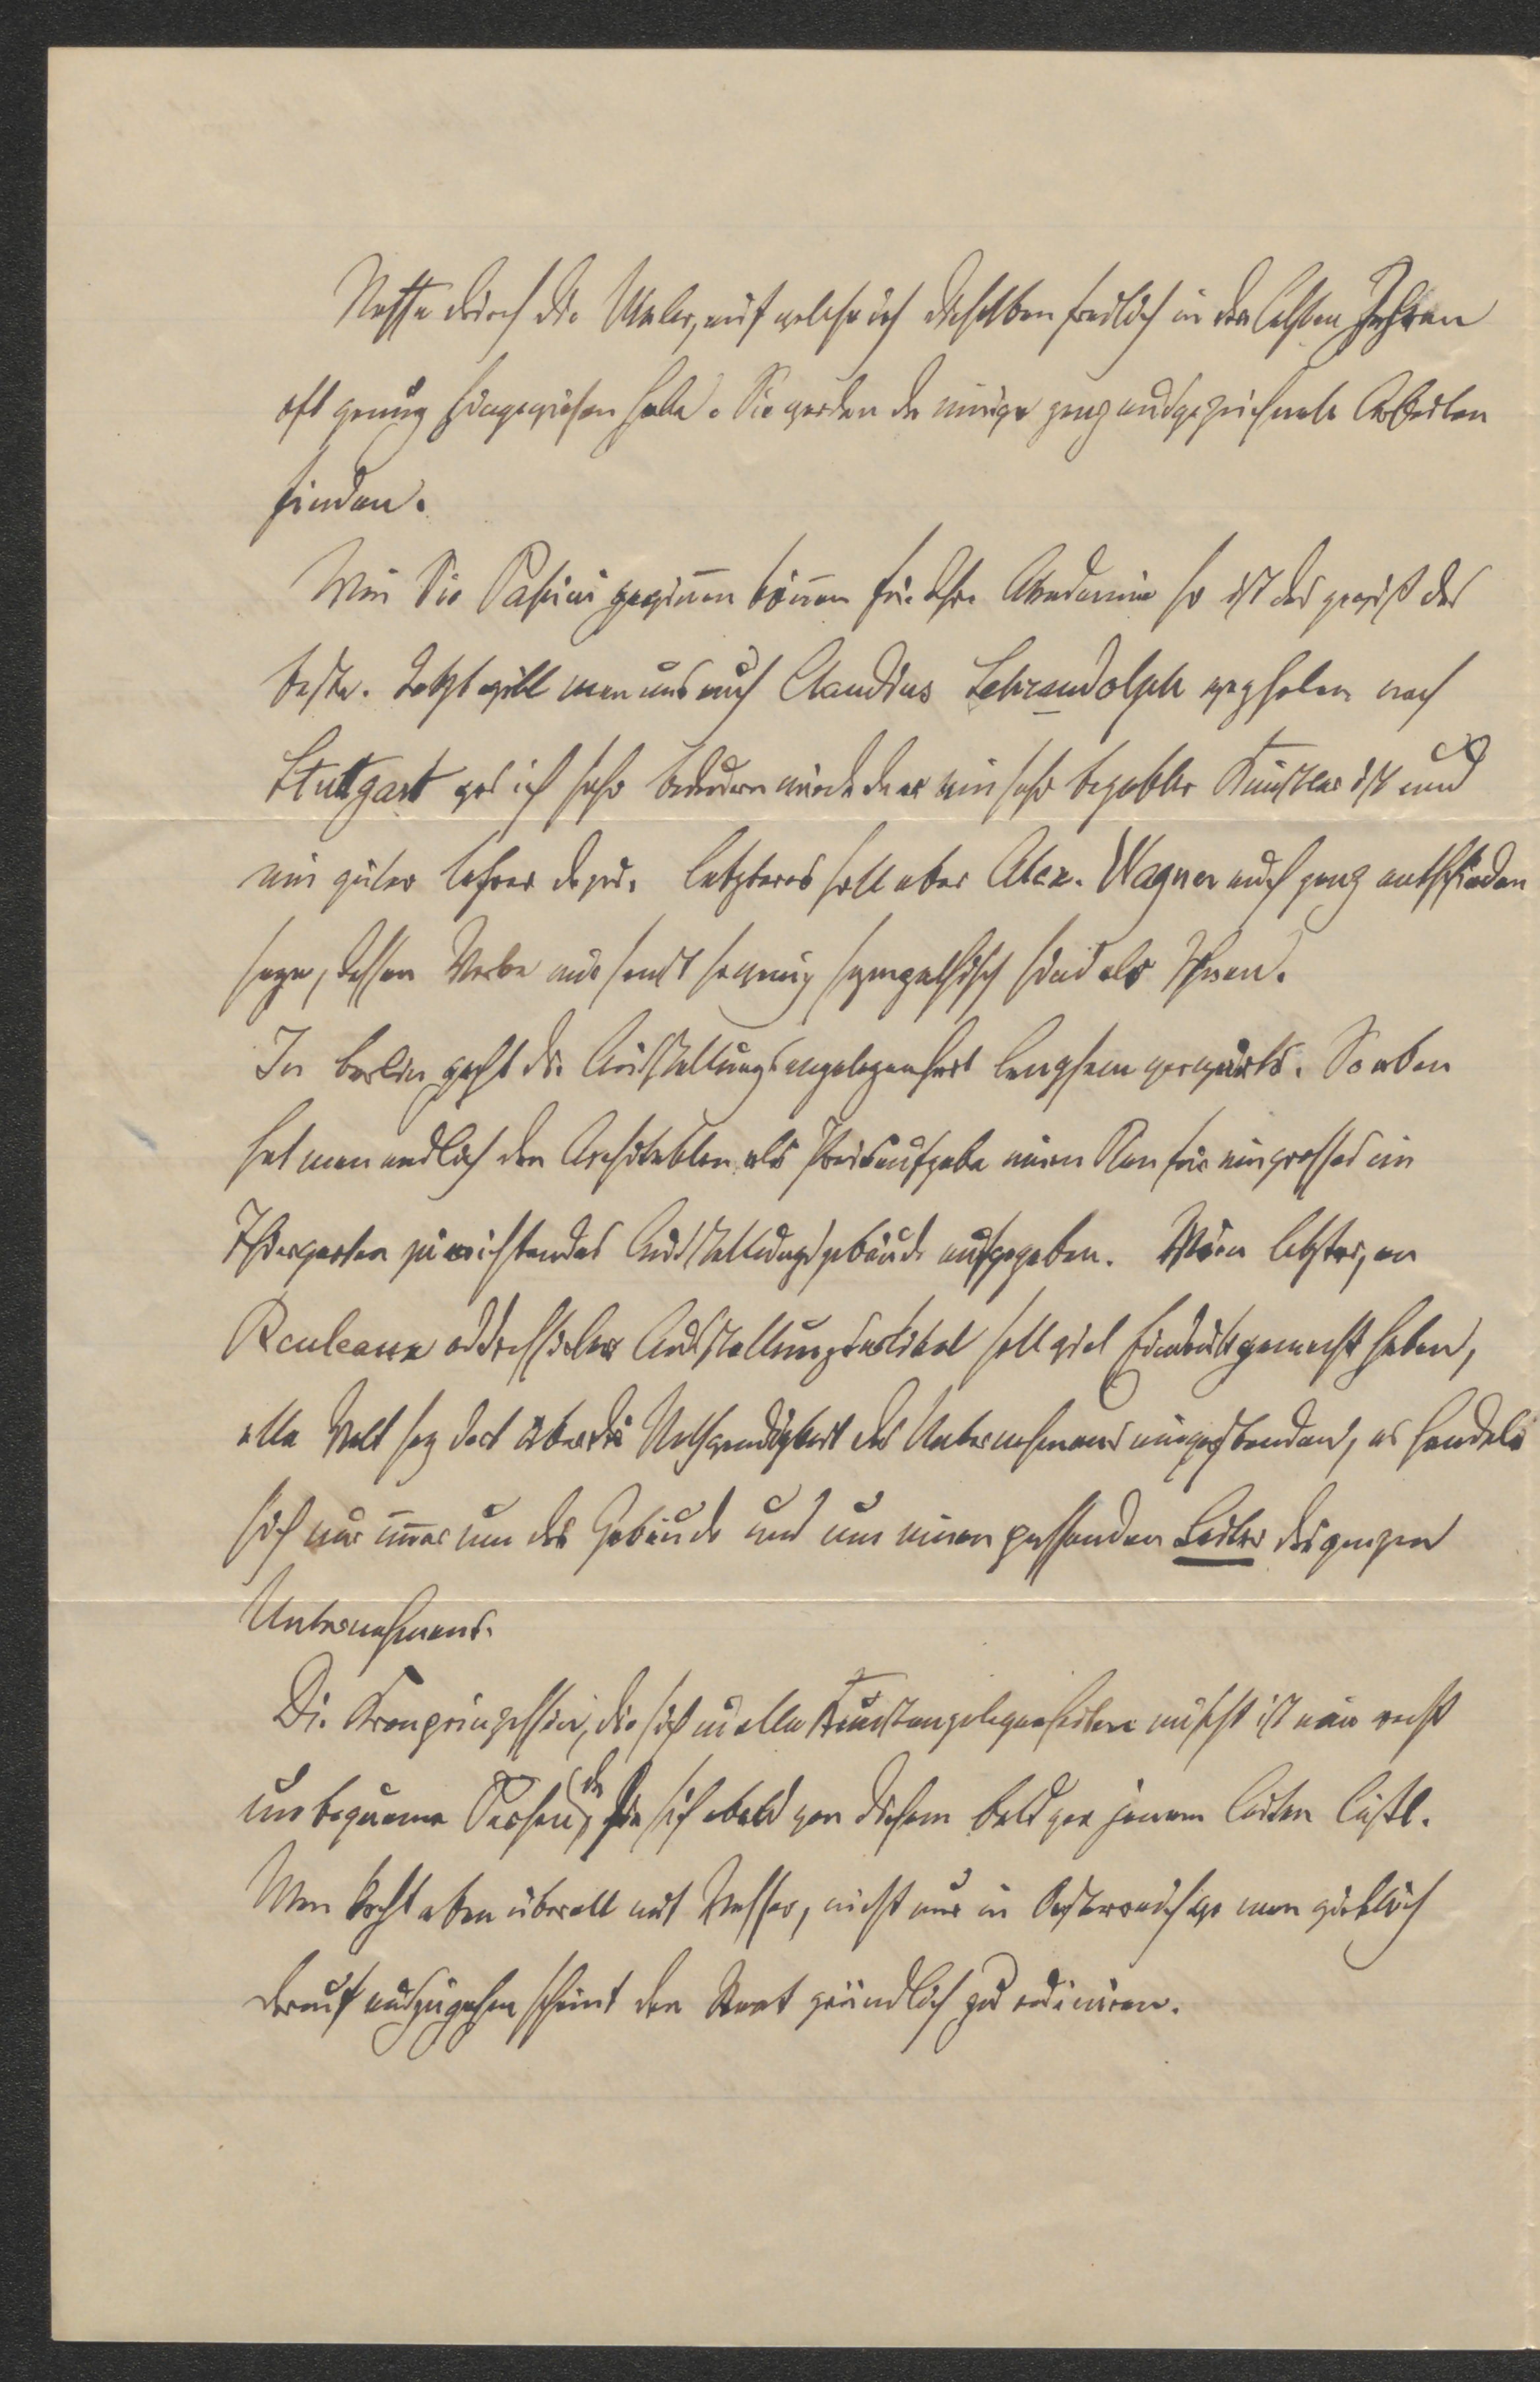 Rosse durch die Maler, auf welche ich dieselben freilich in den letzten Jahren
oft genug hingewiesen habe. Sie werden da einige ganz ausgezeichnete Arbeiten
finden.
Wen Sie Passini gewinnen können für Ihre Akademie so ist das gewiß das
beste. Jetzt will man uns auch Claudius Schraudolph wegholen nach
Stuttgart was ich sehr bedauern würde da er ein sehr begabter Künstler ist und
ein guter Lehrer dazu. Letzteres soll aber Alex. Wagner auch ganz entschieden
seyn, dessen Werke mir sonst so wenig sympathisch sind als Ihnen.
In Berlin geht die Ausstellungsangelegenheit langsam vorwärts. So eben
hat man endlich den Architekten als Preisaufgabe einen Plan für ein grosses im
Thiergarten zu errichtendes Ausstellungsgebäude aufgegeben. Mein letzter, an
Reuleaux addressirter Ausstellungsartikel soll viel Eindruck gemacht haben,
alle Welt sey dort über die Nothwendigkeit des Unternehmens einverstanden, es handele
sich nur immer um das Gebäude und um einen passenden Leiter des ganzen
Unternehmens.
Die Kronprinzessin, die sich in alle Kunstangelegenheiten mischt ist eine recht
unbequeme Person, da sie sich bald von diesem bald von jenem leiten läßt.
Man kocht eben überall mit Wasser, nicht nur in Österreich wo man wirklich
darauf auszugehen scheint den Staat gründlich zu ruiniren.